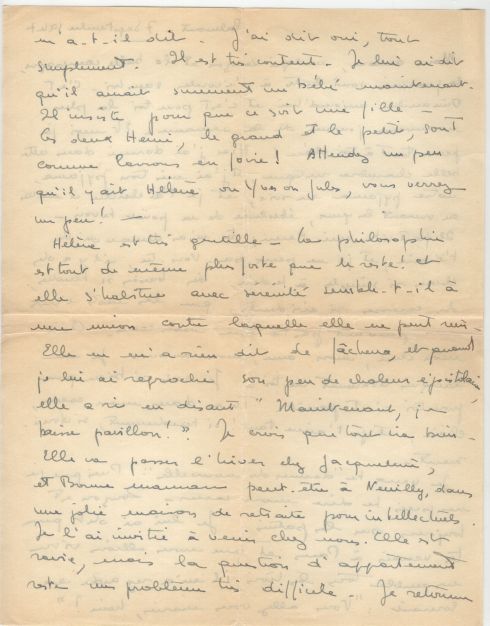 m'a-t-il dit - J'ai dit oui, tout
simplement. Il est très content - Je lui ai dit
qu'il aurait sûrement un bébé maintenant.
Il insiste pour que ce soit une fille -
Les deux Henri, le grand et le petit, sont
comme larrons en foire ! Attendez un peu
qu'il y ait Hélène ou Yves ou Jules, vous verrez
un peu ! -
Hélène est très gentille - La philosophie
est tout de même plus forte que le reste ! et
elle s'habitue avec sérénité semble-t-il à
une union contre laquelle elle ne peut rien -
Elle ne m'a rien dit de fâcheux, et quand
je lui ai reproché son peu de chaleur épistolaire,
elle a ri en disant "Maintenant, j
baisse pavillon ! » Je crois que tout ira bien -
Elle va passer l'hiver chez Jacqueline,
et Bonne maman peut-être à Neuilly, dans
une jolie maison de retraite pour intellectuels.
Je l'ai invitée à venir chez nous. Elle est
ravie, mais la question d'appartement
reste un problème très difficile - Je retourne